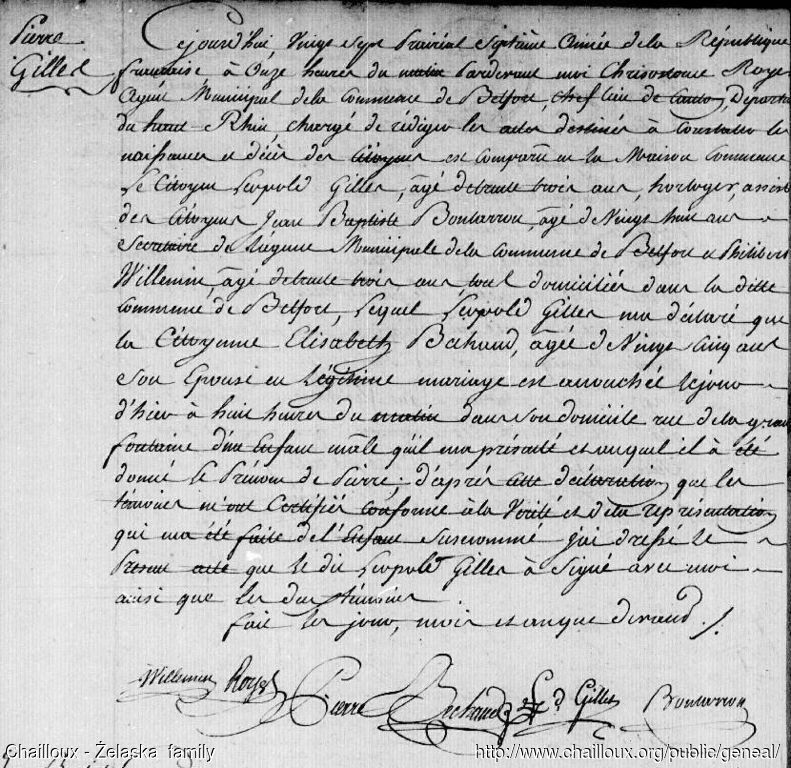 Pierre
Gilles
Cejourd'hui Vingt sept Prairial Septième Année de la République
française, à Onze heures du matin Pardevant moi Chrisostome Royer
Agent Municipal de la Commune de Belfort, chef lieu de Canton, Departe
du haut Rhin, chargé de rédiger les actes destinés à Constater les
naissances et décès des Citoyens est comparu en la Maison Commune
Le Citoyen Leopold Gilles, agé de trente trois ans, horloger, assisté
des Citoyens Jean Baptiste Bontarrou, agé de Vingt huit ans
Secretaire de l'agence Municipale de la Commune de Belfort et Philibert
Willemin, agé de trente trois ans, tous domiciliés dans la ditte
Commune de Belfort, Lequel Leopold Gilles m'a déclaré que
la Citoyenne Elisabeth Bechaud, agée de Vingt Cinq ans
Son Epouse en Légitime mariage est accouchée le jour
d'hier à huit heures du matin dans son domicile rue de la grande
fontaine d'un Enfant mâle qu'il m'a présenté et auquel il à été
donné le Prénom de Pierre; d'après cette déclaration que les
témoins m'ont Certifiés conforme à la Vérité et de la représentation
qui m'a été faite de l'Enfant susnommé j'ai dressé le
Present acte que le dit Leopold Gilles à Signé avec moi
ainsi que les deux témoins.
fait les jour, mois et an que devant ./.
Willemin Royer Pierre Bechaud Ld Gilles Bontarrou
Chailloux - Żelaska family
http://www.chailloux.org/public/geneal/